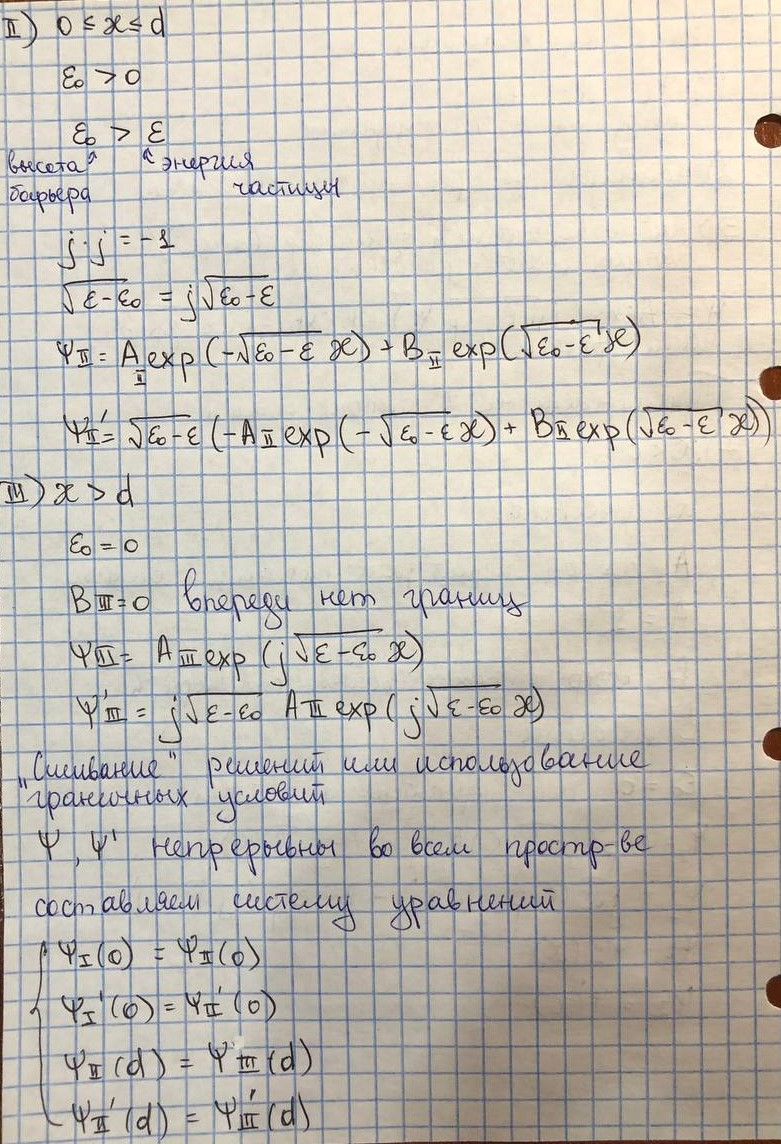 II) 0 ≤ x ≤ d
ε₀ > 0
ε₀ > ε
высота энергия
барьера частицы
j·j = -1
√(ε-ε₀) = j√(ε₀-ε)
Ψ_II = A_II exp(-√(ε₀-ε) x) + B_II exp(√(ε₀-ε) x)
Ψ_II' = √(ε₀-ε) (-A_II exp(-√(ε₀-ε) x) + B_II exp(√(ε₀-ε) x))
III) x > d
ε₀ = 0
B_III = 0 впереди нет границ
Ψ_III = A_III exp(j√(ε-ε₀) x)
Ψ_III' = j√(ε-ε₀) A_III exp(j√(ε-ε₀) x)
„Сшивание" решений или использование
граничных условий
Ψ, Ψ' непрерывны во всем простр-ве
составляем систему уравнений
Ψ_I(0) = Ψ_II(0)
Ψ_I'(0) = Ψ_II'(0)
Ψ_II(d) = Ψ_III(d)
Ψ_II'(d) = Ψ_III'(d)